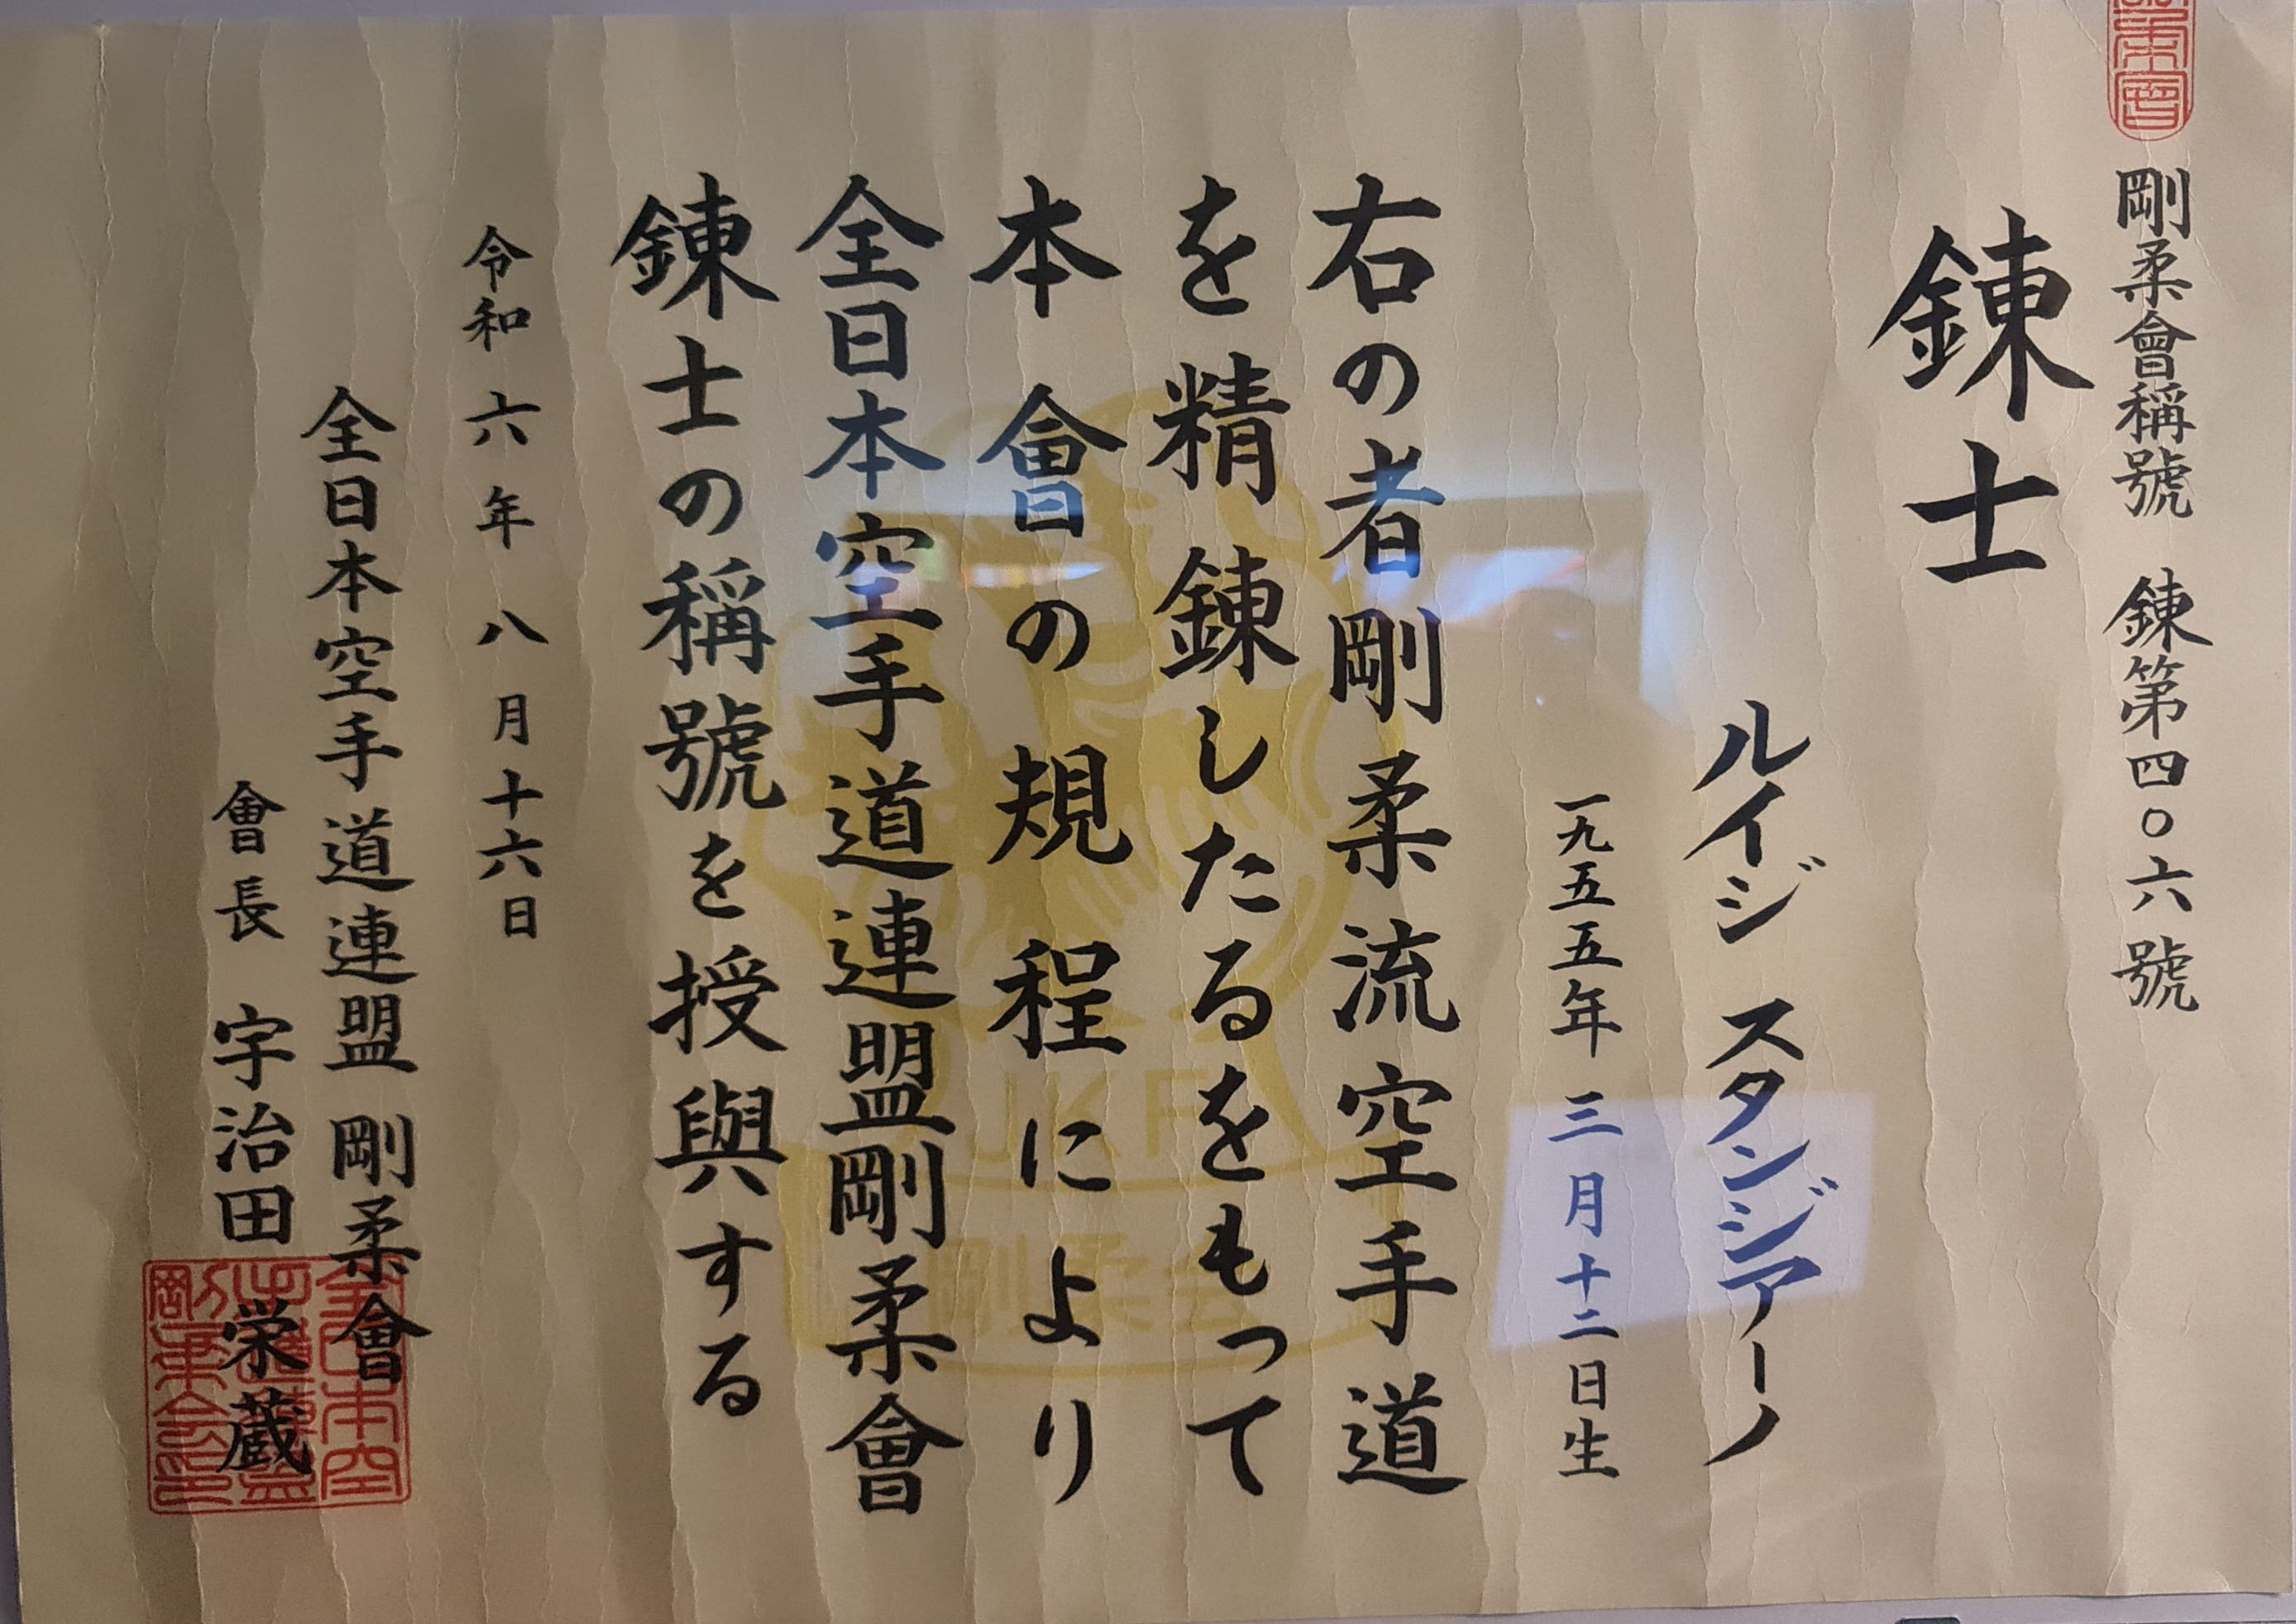 剛柔會稱號　錬第四〇六號
錬士
ルイジ　スタンジアーノ
一九五五年三月十二日生
右の者剛柔流空手道
を精錬したるをもって
本會の規程により
全日本空手道連盟剛柔會
錬士の稱號を授與する
令和六年八月十六日
全日本空手道連盟　剛柔會
會長　宇治田　栄蔵
JKF
剛柔会